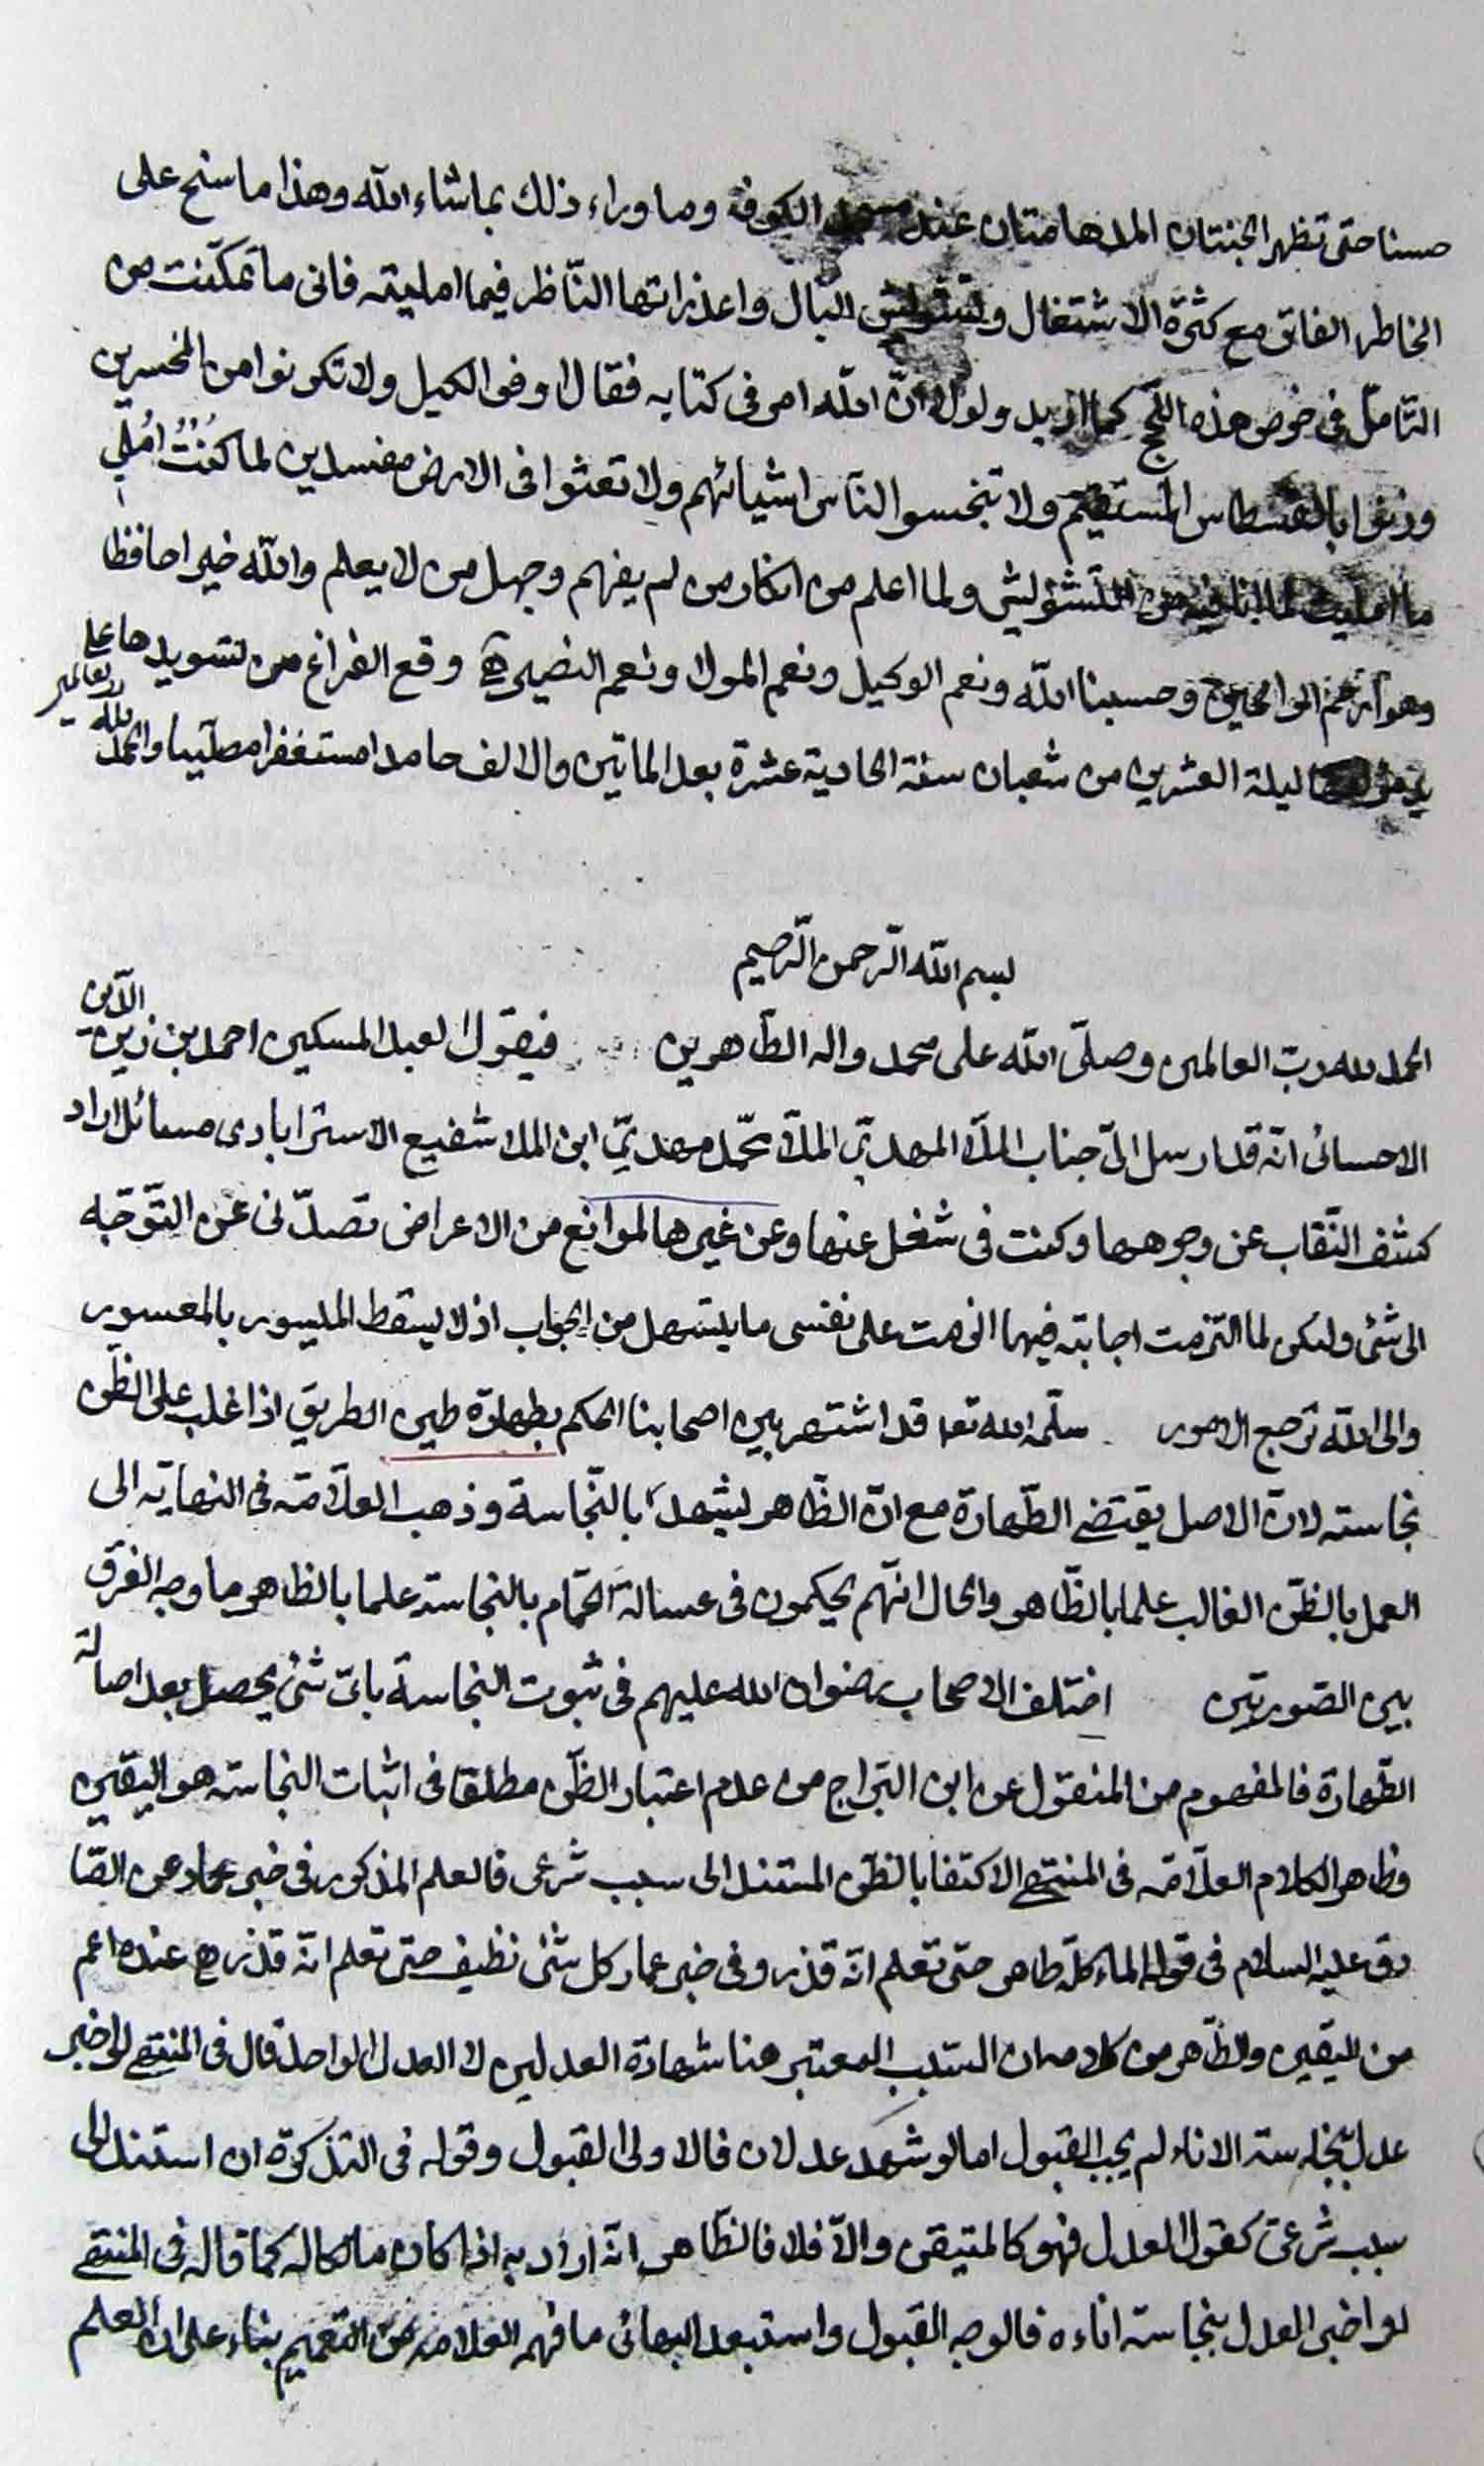 حسنا حتى تظهر الجنتان المدهامتان عند مسجد الكوفة وما وراء ذلك بما شاء الله وهذا ما سنح على
الخاطر الفاتر مع كثرة الاشتغال وتشويش البال واعذر ايها الناظر فيما امليته فانى ما تمكّنت من
التامّل فى خوض هذه اللجج كما اريد ولولا انّ الله امر فى كتابه فقال اوفوا الكيل ولا تكونوا من المخسرين
وزنوا بالقسطاس المستقيم ولا تبخسوا الناس اشيائهم ولا تعثوا فى الارض مفسدين لما كُنْتُ اُملى
ما امليت لما انا فيه من التشويش ولما اعلم من انكار من لم يفهم وجهل من لا يعلم والله خير احافظا
وهو ارحم الراحمين وحسبنا الله ونعم الوكيل ونعم المولى ونعم النصير وقع الفراغ من تسويدها على
يد مؤلفها ليلة العشرين من شعبان سنة الحادية عشرة بعد الماتين والالف حامدا مستغفرا مصليا والحمد لله رب العالمين
بسم الله الرّحمن الرّحيم
الحمد لله ربّ العالمين وصلّى الله على محمد واله الطّاهرين فيقول العبد المسكين احمد بن زين الدّين
الاحسائى انّه قد ارسل الىّ جناب الملّا المهدىّ الملّا محمّد مهدىّ ابن الملا شفيع الاسترابادى مسائل اراد
كشف النّقاب عن وجوهها وكنت فى شغل عنها وعن غيرها لموانع من الاعراض تصدّنى عن التوّجّه
الى شئ ولكن لما التزمت اجابته فيها الزمت على نفسى ما يسهل من الجواب اذ لا يسقط الميسور بالمعسور
والى الله ترجع الامور سلّمه الله تعا قد اشتهر بين اصحابنا الحكم بطهارة طين الطريق اذا غلب على الظّن
نجاسته لان الاصل يقتضى الطّهارة مع انّ الظّاهر يشهد بالنّجاسة وذهب العلّامة فى النهاية الى
العمل بالظّن الغالب عملا بالظّاهر والحال انّهم يحكمون فى غسالة الحمّام بالنجاسة عملا بالظاهر ما وجه الفرق
بين الصّورتين اختلف الاصحاب رضوان الله عليهم فى ثبوت النجاسة باىّ شئ يحصل بعد اصالة
الطّهارة فالمفهوم من المنقول عن ابن البرّاج من عدم اعتبار الظّن مطلقا فى اثبات النجاسة هو اليقين
وظاهر الكلام العلّامة فى المنتهى الاكتفا بالظّن المستند الى سبب شرعى فالعلم المذكور فى خبر حماد عن الصّا
دق عليه السلام فى قوله الماء كلّه طاهر حتى تعلم انّه قذر وفى خبر عمار كل شئ نظيف حتى تعلم انّه قذر ح عنده اعم
من اليقين والظّاهر من كلامه ان السّبب المعتبر هنا شهادة العدلين لا العدل الواحد قال فى المنتهى لو اخبر
عدل بنجاسة الاناء لم يجب القبول اما لو شهد عدلان فالاولى القبول وقوله فى التذكرة ان استند الى
سبب شرعى كقول العدل فهو كالمتيقن والّا فلا فالظّاهر انّه اراد به اذا كان مالكا له كما قاله فى المنتهى
لو اخبر العدل بنجاسة اناءه فالوجه القبول واستبعد البهائى ما فهمه العلامة من التعميم بناء على ان العلم